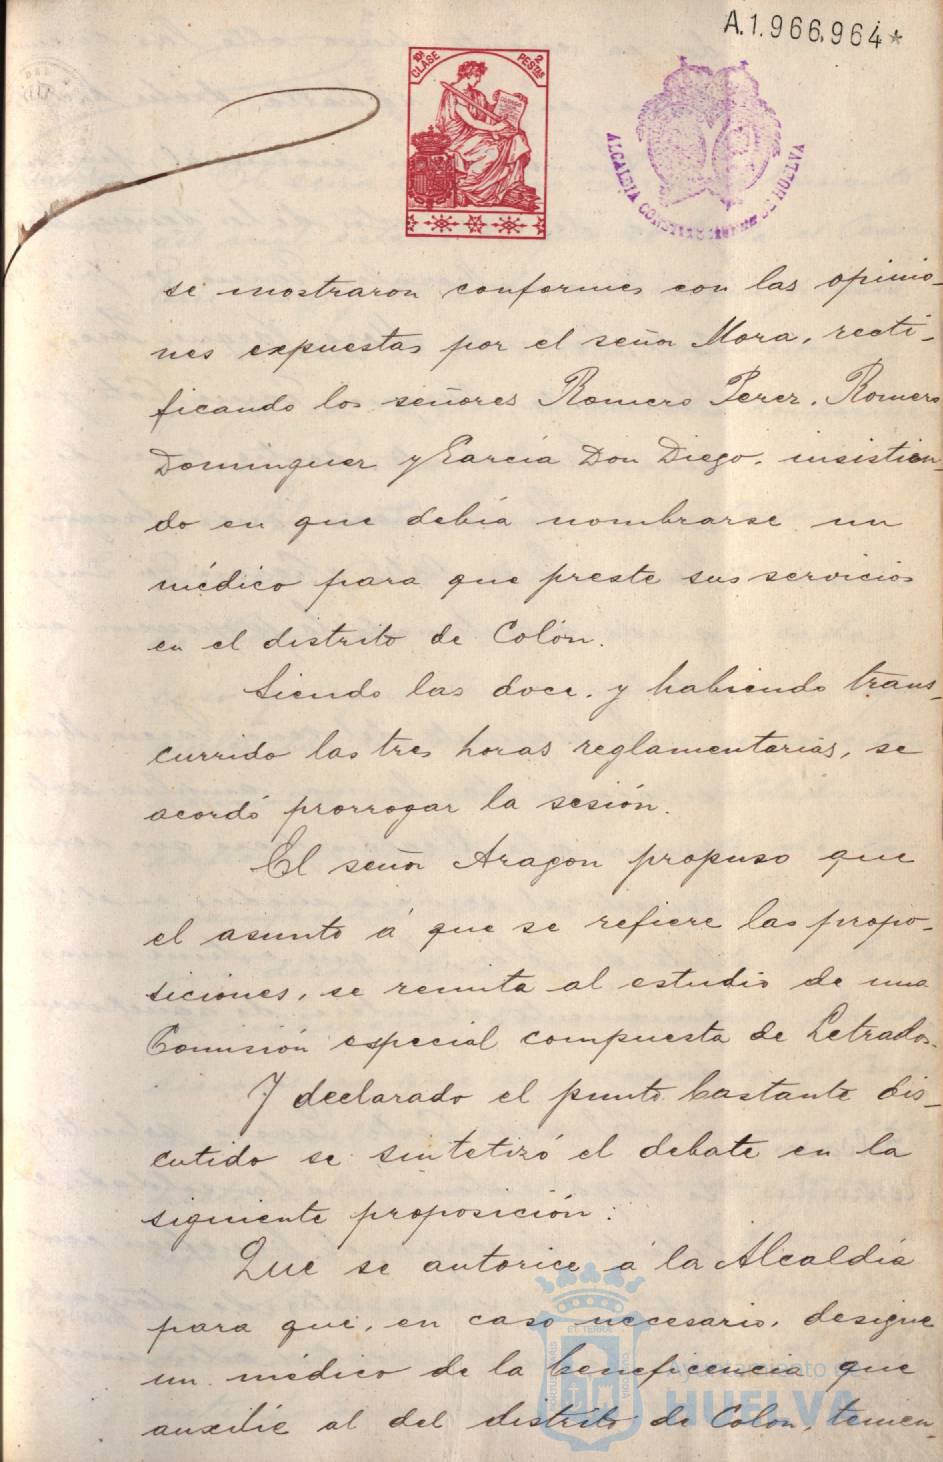 A.1.966.964*
10ª CLASE
2 PESTAS
ALCALDIA CONSTITUCIONAL DE HUELVA
se mostraron conformes con las opinio-
nes expuestas por el señor Mora, recti-
ficando los señores Romero Perez, Romero
Dominguez y García Don Diego, insistien-
do en que debía nombrarse un
médico para que preste sus servicios
en el distrito de Colón.
Siendo las doce, y habiendo trans-
currido las tres horas reglamentarias, se
acordó prorrogar la sesión.
El señor Aragon propuso que
el asunto á que se refiere las propo-
siciones, se remita al estudio de una
Comisión especial compuesta de Letrados.
Y declarado el punto bastante dis-
cutido se sintetizó el debate en la
siguiente proposición:
Que se autorice á la Alcaldía
para que, en caso necesario, designe
un médico de la beneficencia que
auxilie al del distrito de Colon, tenien-
Ayuntamiento de
HUELVA